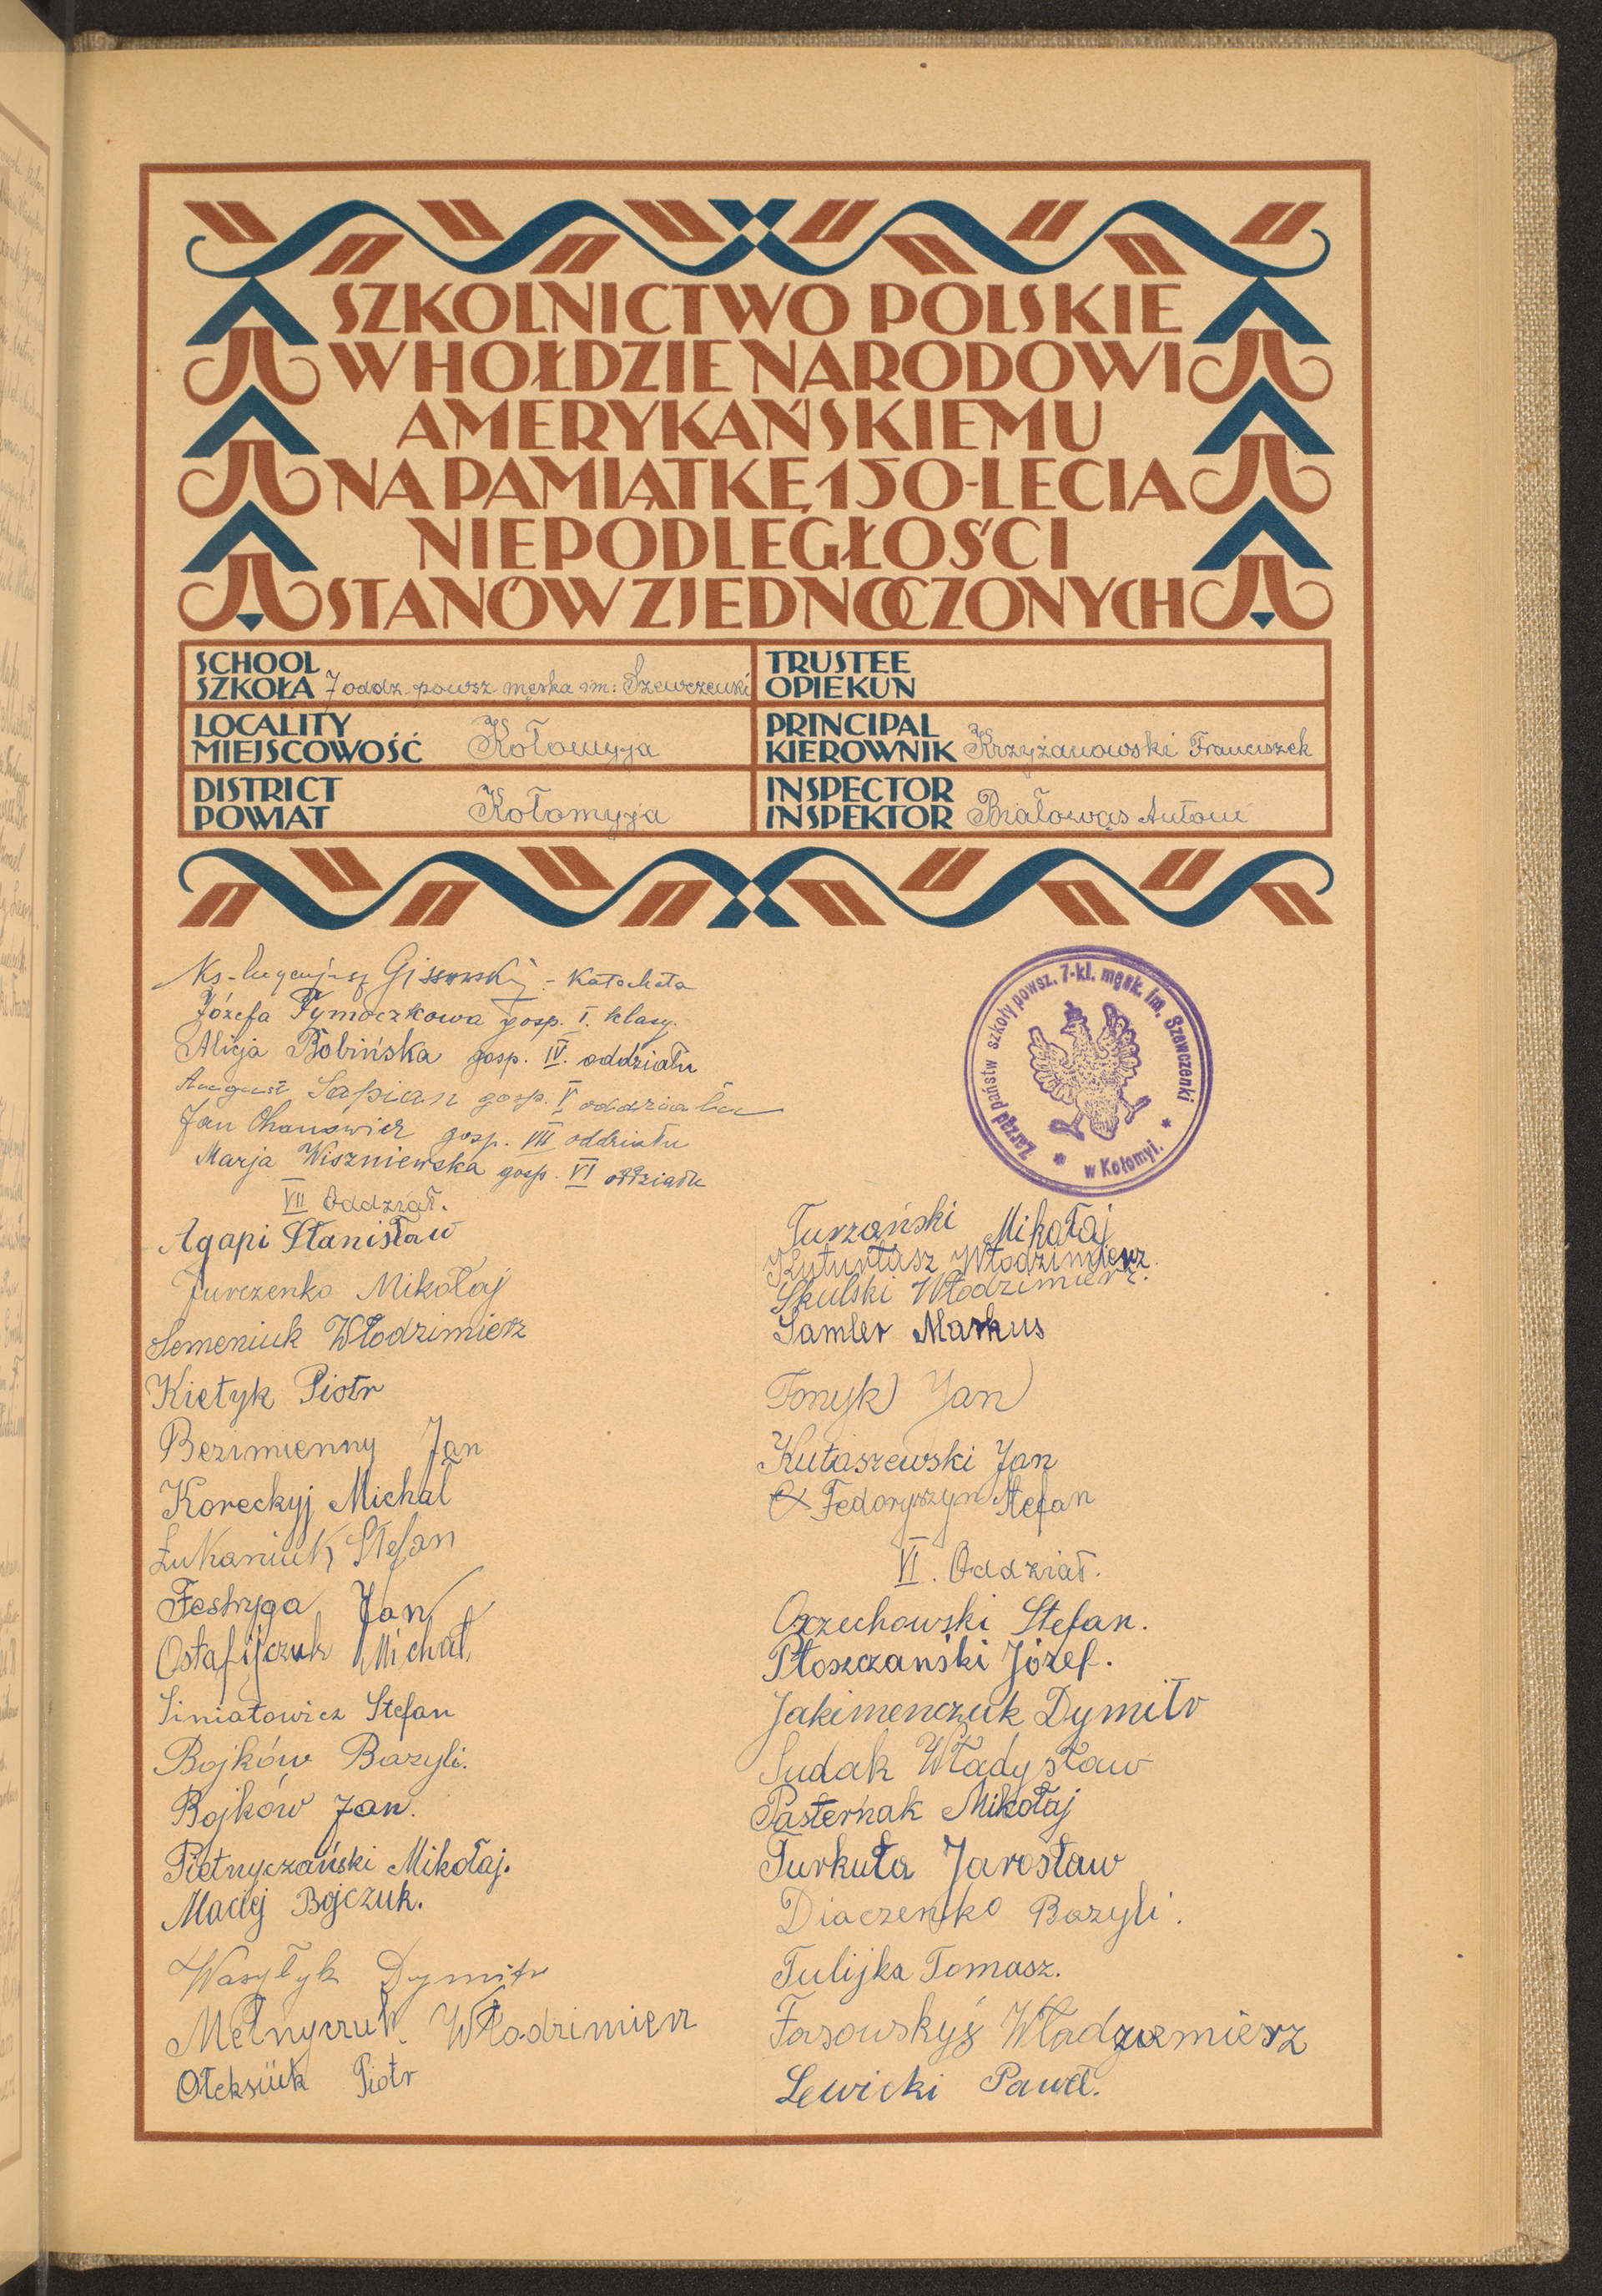 SZKOLNICTWO POLSKIE
W HOŁDZIE NARODOWI
AMERYKAŃSKIEMU
NA PAMIĄTKĘ 150-LECIA
NIEPODLEGŁOŚCI
STANÓW ZJEDNOCZONYCH
SCHOOL
SZKOŁA 7 oddz. powsz męska im: Szewczenki
TRUSTEE
OPIEKUN
LOCALITY
MIEJSCOWOŚĆ Kołomyja
PRINCIPAL
KIEROWNIK Krzyżanowski Franciszek
DISTRICT
POWIAT Kołomyja
INSPECTOR
INSPEKTOR Białowąs Antoni
Ks. - Katecheta
Józefa Tymoczkowa gosp. I. klasy.
Alicja Bobińska gosp. IV. oddziału
August Sapian gosp. V oddziału
Jan Ohanowicz gosp. VII oddziału
Marja Wiszniewska gosp. VI oddziału
Zarząd państw szkoły powsz. 7-kl. męsk. im. Szewczenki
* w Kołomyi. *
VII Oddział.
Agapi Stanisław
Jurczenko Mikołaj
Semeniuk Włodzimierz
Kiełyk Piotr
Bezimienny Jan
Koreckyj Michał
Łukaniuk Stefan
Festryga Jan
Ostafijczuk Michał
Siniatowicz Stefan
Bojków Bazyli.
Bojków Jan.
Piotnyczański Mikołaj.
Maciej Bojczuk.
Wasyłyk Dymitr
Melnyczuk Włodzimierz
Ołeksiuk Piotr
Turzański Mikołaj
Kuturłasz Włodzimierz.
Skulski Włodzimierz.
Samler Markus
Fomyk Jan
Kułaszewski Jan
Fedoryszyn Stefan
VI. Oddział.
Orzechowski Stefan.
Płoszczański Józef.
Jakimenczuk Dymitr
Sudak Władysław
Pasternak Mikołaj
Turkuła Jarosław
Diaczenko Bazyli.
Tulijka Tomasz.
Fasowskyj
Lewicki Paweł.